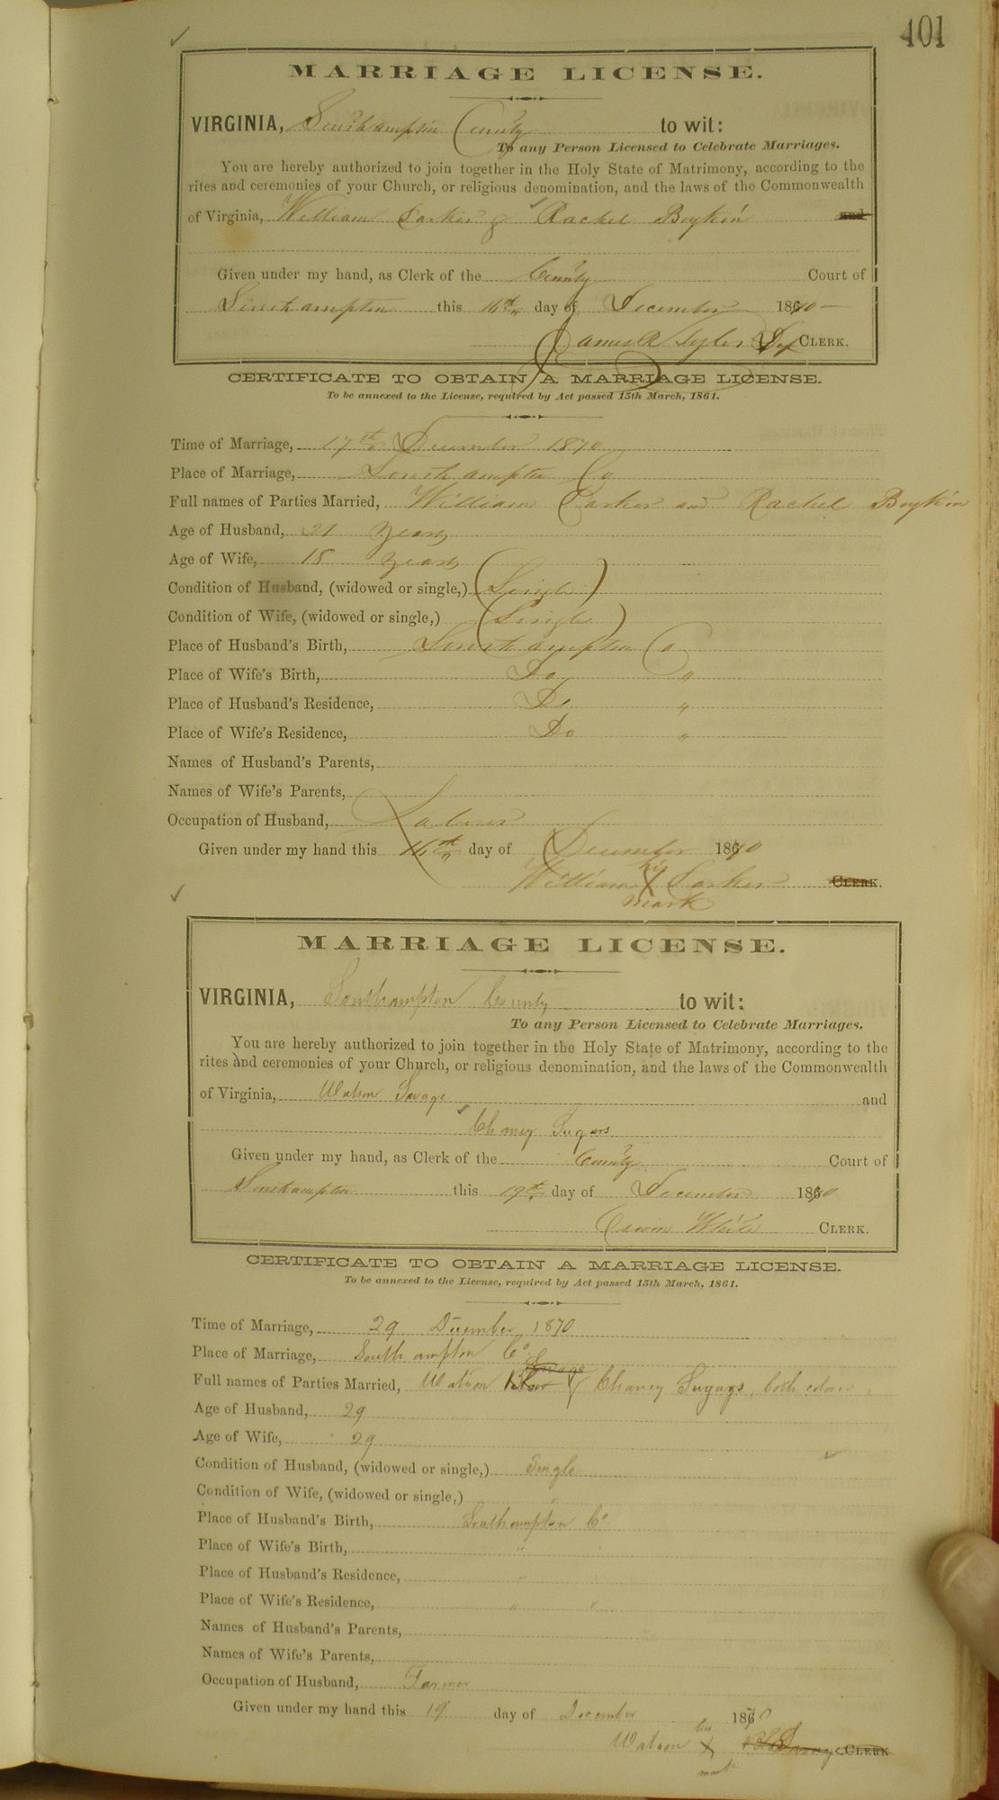 401
MARRIAGE LICENSE.
VIRGINIA, Southampton County to wit:
To any Person Licensed to Celebrate Marriages.
You are hereby authorized to join together in the Holy State of Matrimony, according to the
rites and ceremonies of your Church, or religious denomination, and the laws of the Commonwealth
of Virginia, William Parker & Rachel Boykin and
Given under my hand, as Clerk of the County Court of
Southampton this 16th day of December 1870
James A Tyler Dep CLERK.
CERTIFICATE TO OBTAIN A MARRIAGE LICENSE.
To be annexed to the License, required by Act passed 15th March, 1861.
Time of Marriage, 17th December 1870
Place of Marriage, Southampton Co
Full names of Parties Married, William Parker and Rachel Boykin
Age of Husband, 21 years
Age of Wife, 18 years
Condition of Husband, (widowed or single,) (Single)
Condition of Wife, (widowed or single,) (Single)
Place of Husband's Birth, Southampton Co
Place of Wife's Birth, Do "
Place of Husband's Residence, Do "
Place of Wife's Residence, Do "
Names of Husband's Parents,
Names of Wife's Parents,
Occupation of Husband, Laborer
Given under my hand this 16th day of December 1870
William his X Parker CLERK.
mark
MARRIAGE LICENSE.
VIRGINIA, Southampton County to wit:
To any Person Licensed to Celebrate Marriages.
You are hereby authorized to join together in the Holy State of Matrimony, according to the
rites and ceremonies of your Church, or religious denomination, and the laws of the Commonwealth
of Virginia, Watson Savage and
Chaney
Given under my hand, as Clerk of the County Court of
Southampton this 19th day of December 1870
White CLERK.
CERTIFICATE TO OBTAIN A MARRIAGE LICENSE.
To be annexed to the License, required by Act passed 15th March, 1861.
Time of Marriage, 29 December 1870
Place of Marriage, Southampton Co
Savage
Full names of Parties Married, Watson & Chaney both
Age of Husband, 29
Age of Wife, 29
Condition of Husband, (widowed or single,) Single
Condition of Wife, (widowed or single,) "
Place of Husband's Birth, Southampton Co
Place of Wife's Birth, "
Place of Husband's Residence, "
Place of Wife's Residence, " "
Names of Husband's Parents,
Names of Wife's Parents,
Occupation of Husband, Farmer
Given under my hand this 19 day of December 1870
Watson his X Savage CLERK
mark